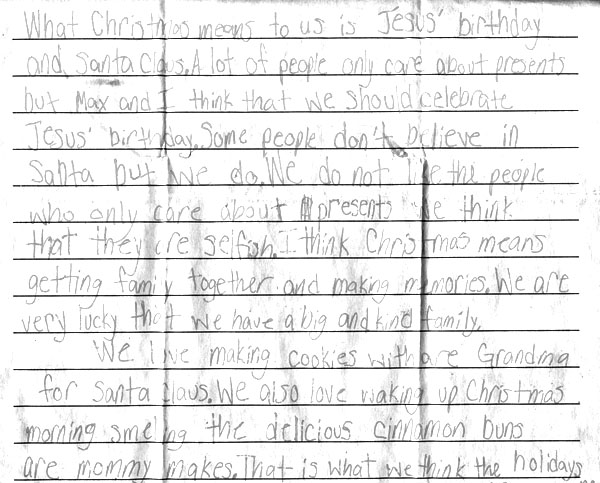 What Christmas means to us is Jesus' birthday
and Santa Claus. A lot of people only care about presents
but Max and I think that we should celebrate
Jesus' birthday. Some people don't believe in
Santa but we do. We do not like the people
who only care about presents we think
that they are selfish. I think Christmas means
getting family together and making memories. We are
very lucky that we have a big and kind family.
We love making cookies with are Grandma
for Santa Claus. We also love waking up Christmas
morning smelling the delicious cinnamon buns
are mommy makes. That is what we think the holidays